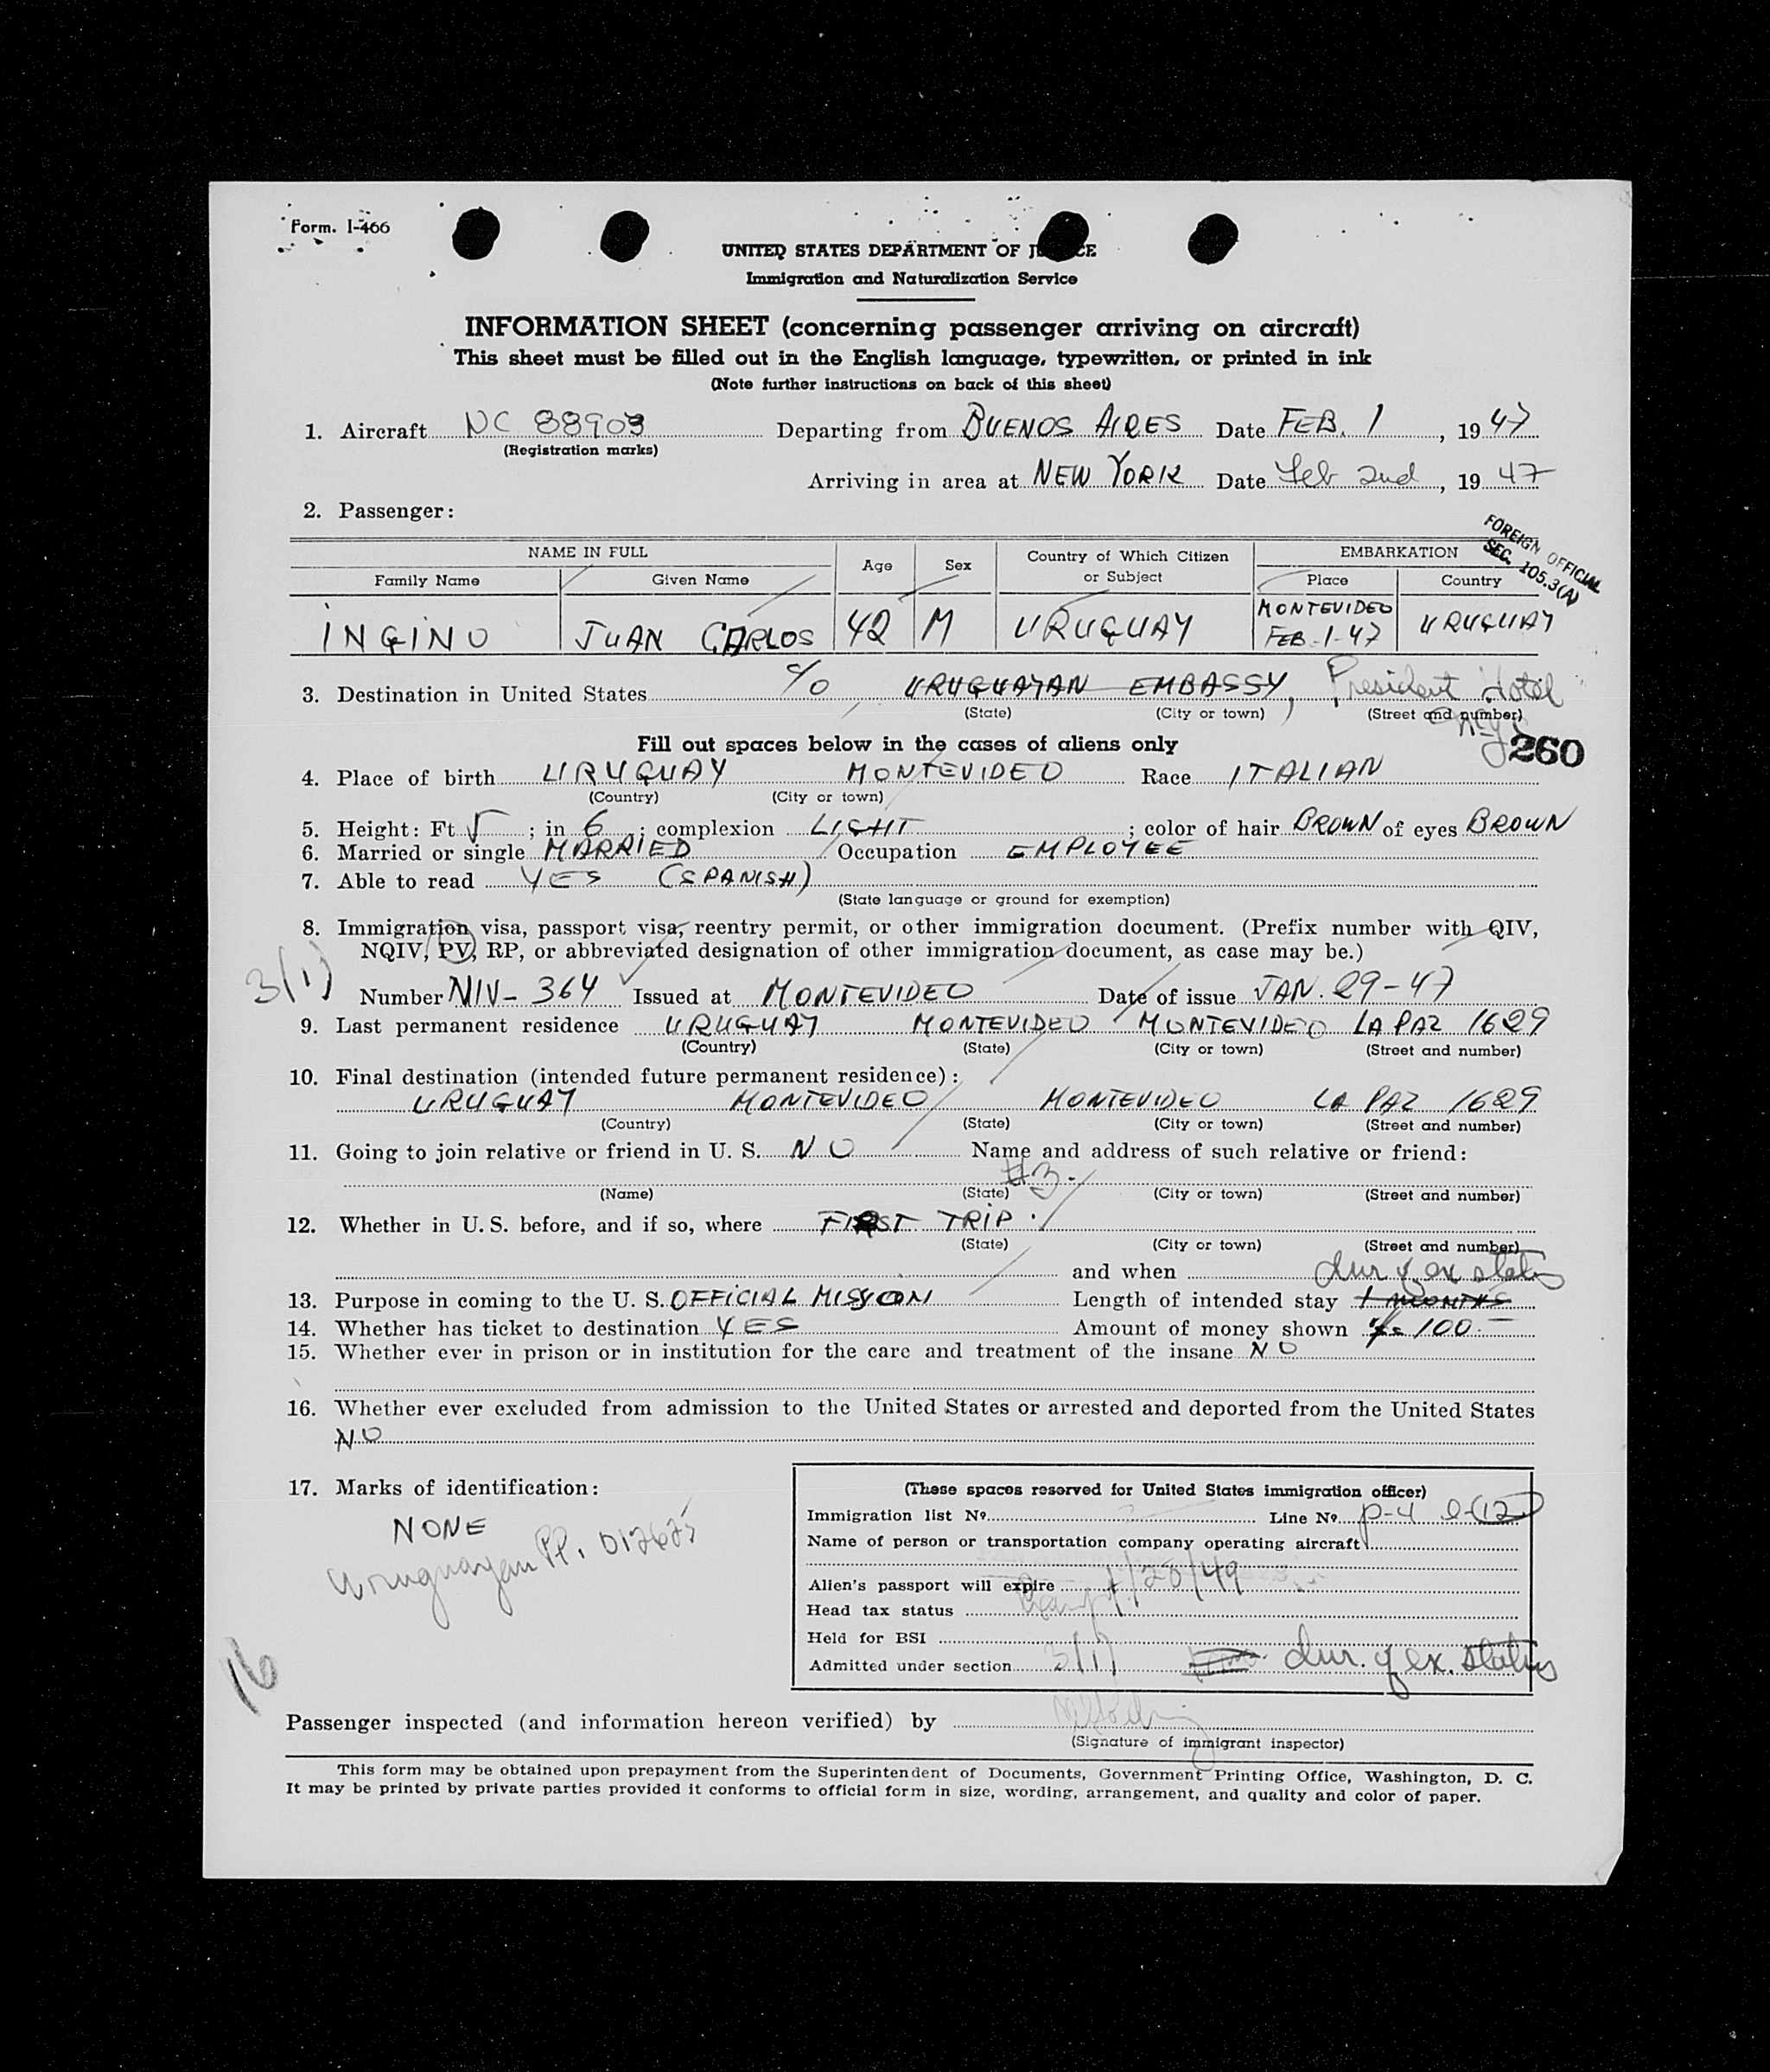 Form. I-466
UNITED STATES DEPARTMENT OF J CE
Immigration and Naturalization Service
INFORMATION SHEET (concerning passenger arriving on aircraft)
This sheet must be filled out in the English language, typewritten, or printed in ink
(Note further instructions on back of this sheet)
1. Aircraft NC 88903 Departing from BUENOS AIRES Date FEB. 1, 1947
(Registration marks)
Arriving in area at NEW YORK Date Feb 2nd, 1947
2. Passenger:
FOREIGN OFFICIAL
SEC. 105.3(A)
NAME IN FULL Age Sex Country of Which Citizen or Subject EMBARKATION
Family Name Given Name Place Country
INGINO JUAN CARLOS 42 M URUGUAY MONTEVIDEO FEB-1-47 URUGUAY
3. Destination in United States c/o URUGUAYAN EMBASSY, President Hotel
(State) (City or town) (Street and number)
NYC
260
Fill out spaces below in the cases of aliens only
4. Place of birth URUGUAY MONTEVIDEO Race ITALIAN
(Country) (City or town)
5. Height: Ft 5; in 6; complexion LIGHT; color of hair BROWN of eyes BROWN
6. Married or single MARRIED Occupation EMPLOYEE
7. Able to read YES (SPANISH)
(State language or ground for exemption)
8. Immigration visa, passport visa, reentry permit, or other immigration document. (Prefix number with QIV,
NQIV, PV, RP, or abbreviated designation of other immigration document, as case may be.)
3(1)
Number NIV- 364 Issued at MONTEVIDEO Date of issue JAN. 29-47
9. Last permanent residence URUGUAY MONTEVIDEO MONTEVIDEO LA PAZ 1629
(Country) (State) (City or town) (Street and number)
10. Final destination (intended future permanent residence):
URUGUAY MONTEVIDEO MONTEVIDEO LA PAZ 1629
(Country) (State) (City or town) (Street and number)
11. Going to join relative or friend in U. S. NO Name and address of such relative or friend:
#3.
(Name) (State) (City or town) (Street and number)
12. Whether in U. S. before, and if so, where FIRST TRIP.
(State) (City or town) (Street and number)
and when dur of ex status
13. Purpose in coming to the U. S. OFFICIAL MISSION Length of intended stay 1 MONTHS
14. Whether has ticket to destination YES Amount of money shown 100.—
15. Whether ever in prison or in institution for the care and treatment of the insane NO
16. Whether ever excluded from admission to the United States or arrested and deported from the United States
NO
17. Marks of identification:
NONE
Uruguayan PP. 012625
16
(These spaces reserved for United States immigration officer)
Immigration list Nº Line Nº P-4 l-(12)
Name of person or transportation company operating aircraft
Alien's passport will expire 1/28/49
Head tax status Exempt
Held for BSI
Admitted under section 3(1) dur. of ex. status
Passenger inspected (and information hereon verified) by
(Signature of immigrant inspector)
This form may be obtained upon prepayment from the Superintendent of Documents, Government Printing Office, Washington, D. C.
It may be printed by private parties provided it conforms to official form in size, wording, arrangement, and quality and color of paper.